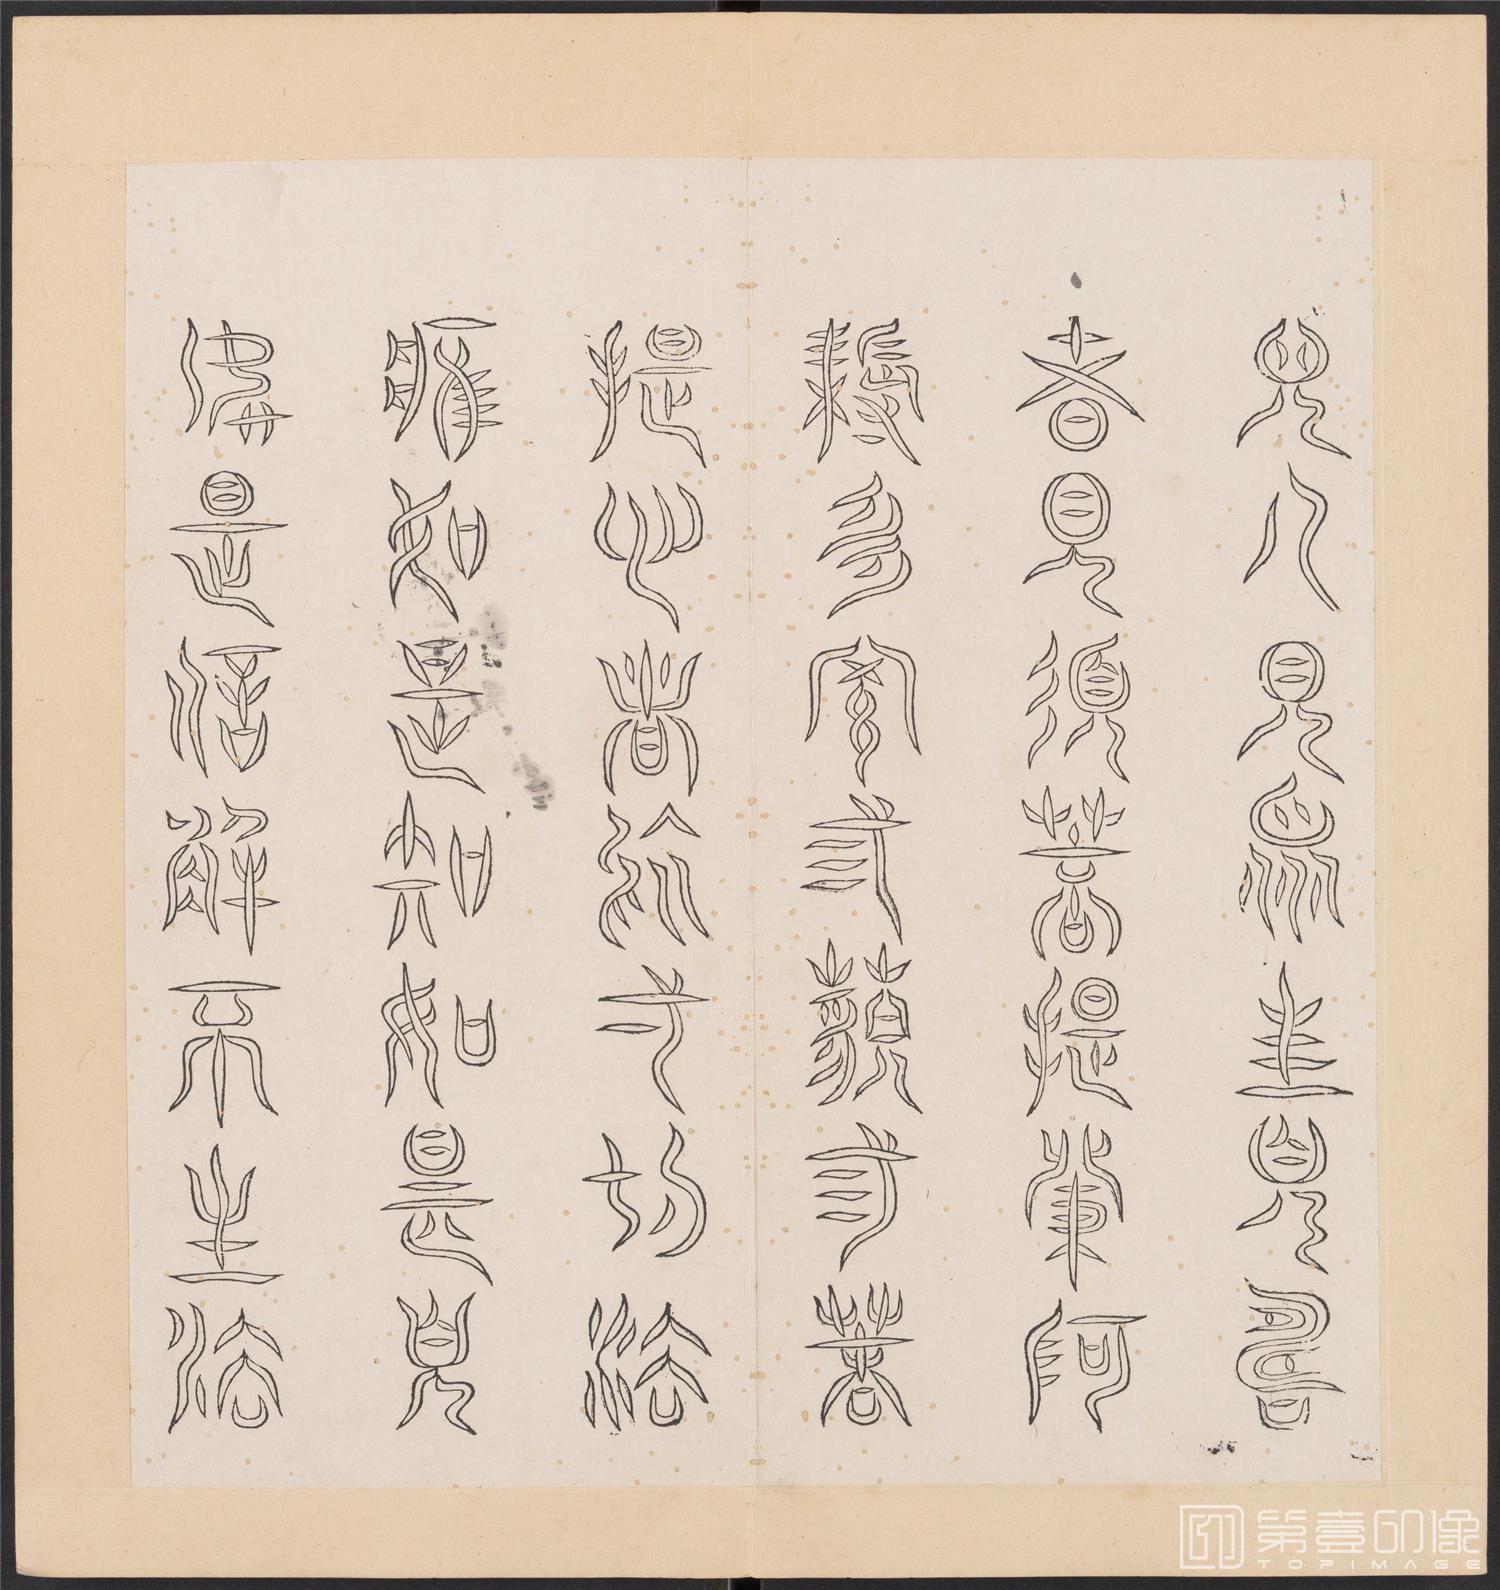 見人見眾生見壽
者見須菩提發阿
耨多羅三藐三菩
提心者於一切法
應如是知如是見
如是信解不生法
第壹印像
TOPIMAGE